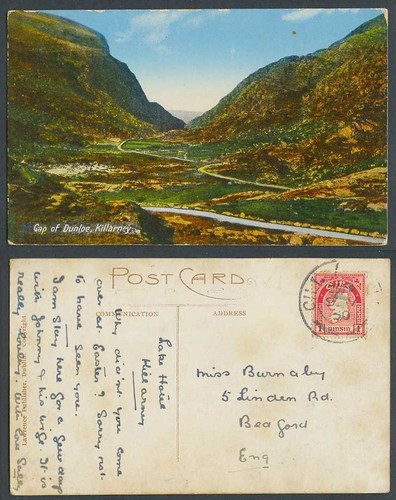 Gap of Dunloe, Killarney
POST CARD
COMMUNICATION
ADDRESS
Lake Hotel
Killarney
Why didn't you come
over at Easter? Sorry not
to have seen you.
I am stay here for a few days
with Johnny & his wife. It is
really lovely. With love Sally
Lawrence Publisher, Dublin
Miss Burnaby
5 Linden Rd.
Bedford
Eng
1 PINGIN 1